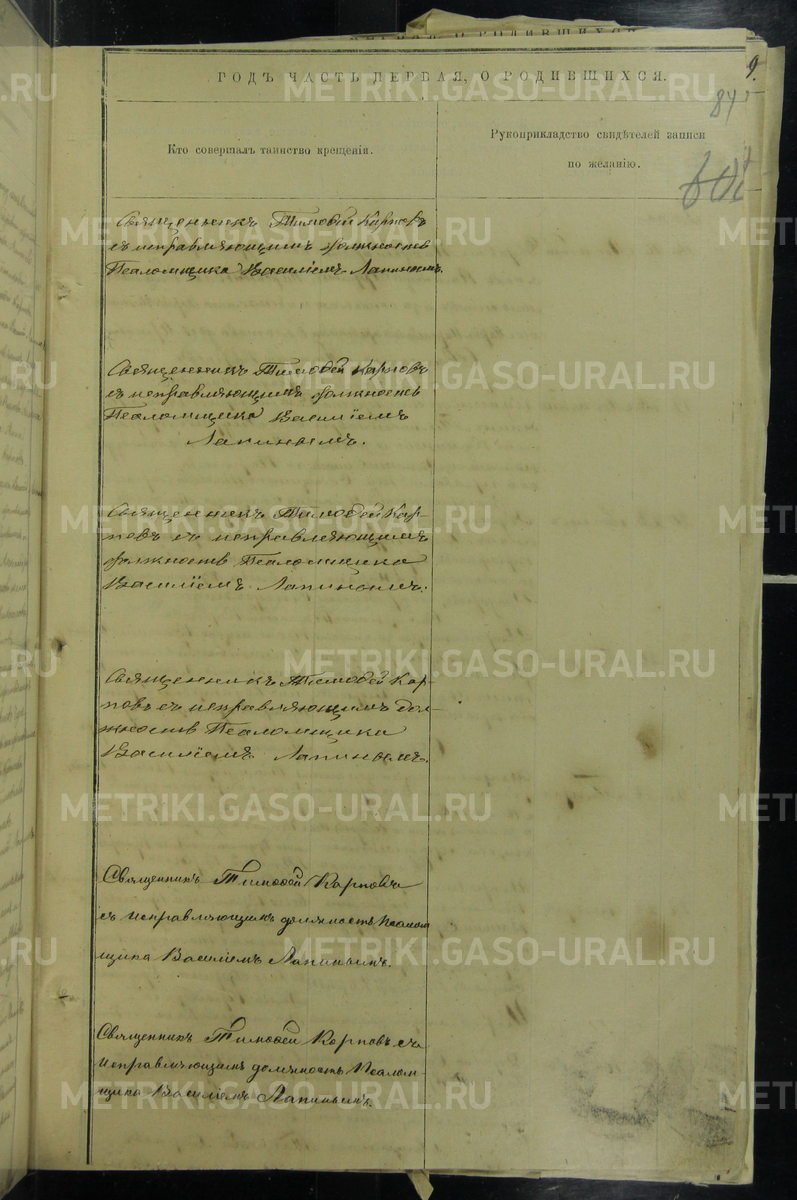 ГОДЪ ЧАСТЬ ПЕРВАЯ, О РОДИВШИХСЯ.
9.
84
Кто совершалъ таинство крещенія.
Рукоприкладство свидѣтелей записи
по желанію.
Священникъ Тимоѳей Карповъ
съ исправляющимъ должность
Псаломщика Василіемъ Лапинымъ.
Священникъ Тимоѳей Карповъ
съ исправляющимъ должность
Псаломщика Василіемъ
Лапинымъ.
Священникъ Тимоѳей Кар-
повъ съ исправляющимъ
должность Псаломщика
Василіемъ Лапинымъ.
Священникъ Тимоѳей Кар-
повъ съ исправляющимъ дол-
жность Псаломщика
Василіемъ Лапинымъ.
Священникъ Тимоѳей Карповъ
съ исправляющимъ должность Псалом
щика Василіемъ Лапинымъ.
Священникъ Тимоѳей Карповъ съ
исправляющимъ должность Псалом-
щика Василіемъ Лапинымъ.
METRIKI.GASO-URAL.RU